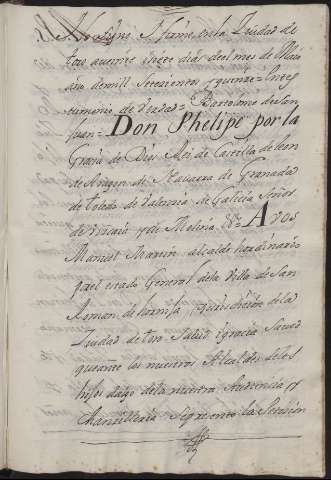 firme en la Ziudad de
toro a veinte y siete dias del mes de
de mill Setezientos y quinze = En tes
timonio de Verdad = Bartolome de San
Juan = Don Phelipe por la
Grazia de Dios Rei de Castilla de leon
de Aragon de Navarra de Granada
de Toledo de Valencia de Galicia Señor
de Vizcaia y de Molina &c A vos
Manuel Martin alcalde hordinario
por el estado General de la Villa de San
Roman de hornija Jurisdicion de la
Ziudad de toro Salud y gracia Saved
que ante los nuestros Alcaldes de los
hijos dalgo de la nuestra Audiencia y
Chanzilleria Se presento la Petizion